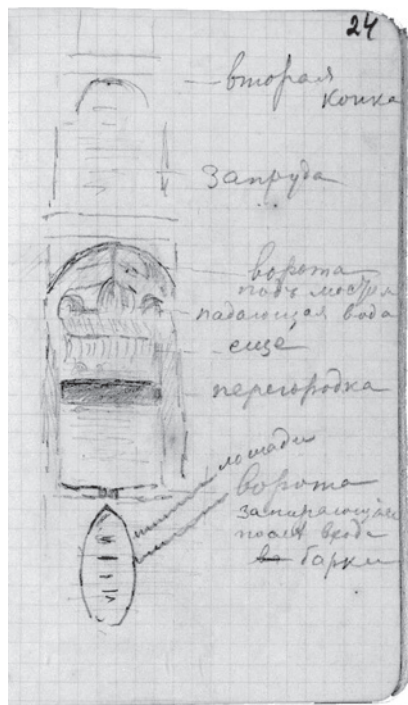 24
вторая
конка
запруда
ворота
подъ мостом
падающая вода
еще
перегородка
лошади
ворота
запирающіеся
после входа
барки